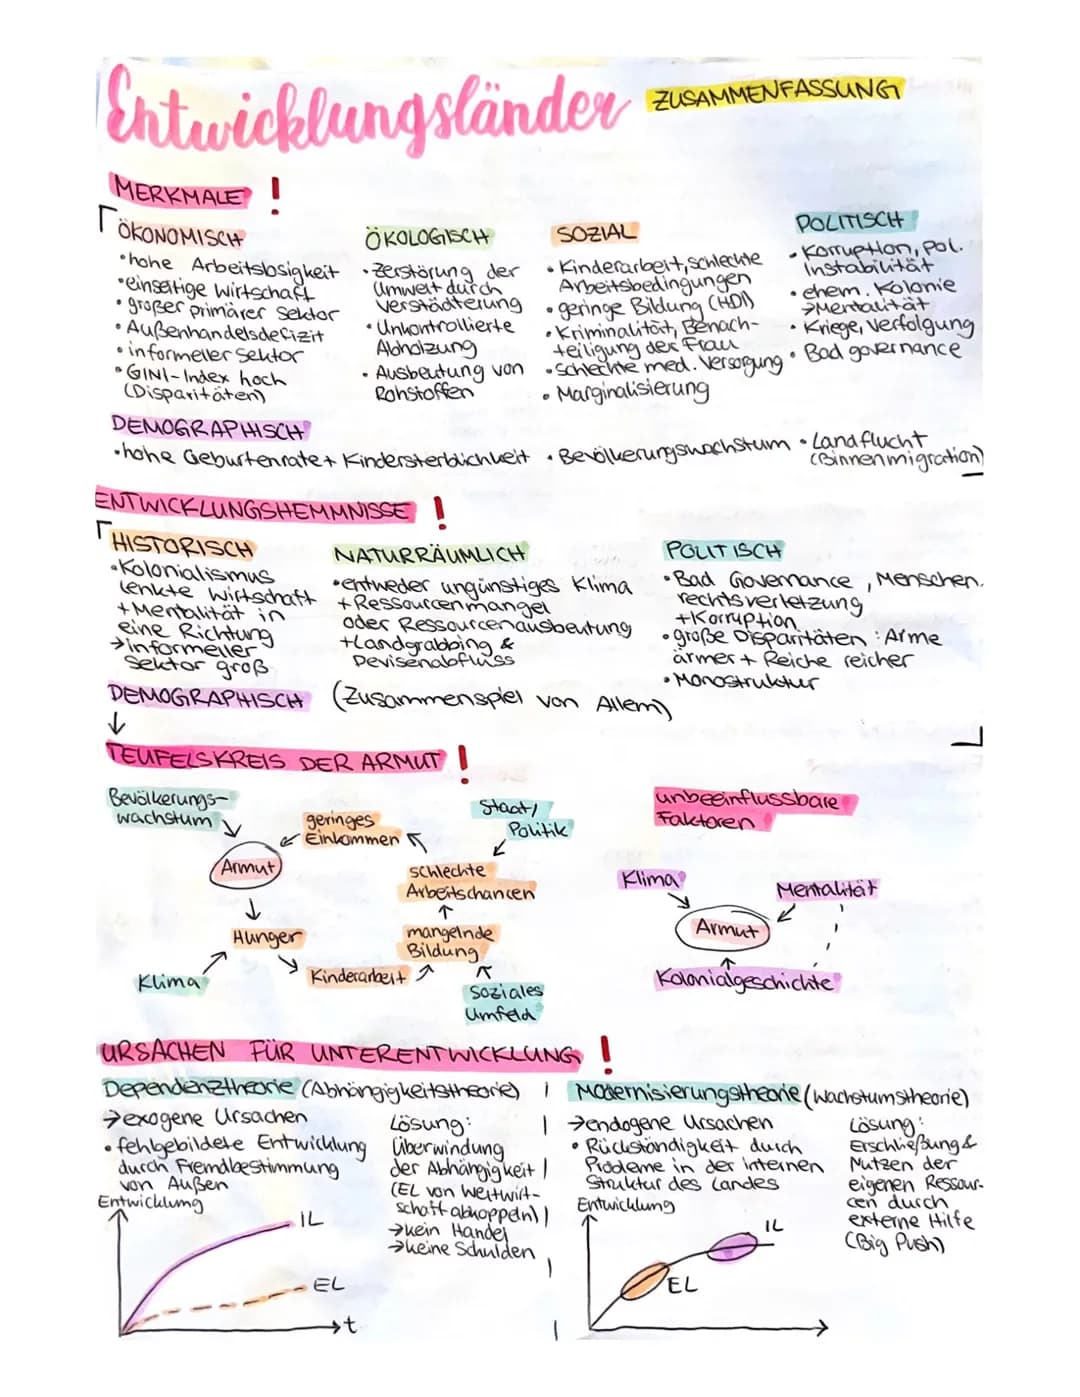 Entwicklungsländer ZUSAMMENFASSUNG
MERKMALE !
ÖKONOMISCH
• hohe Arbeitslosigkeit
• einseitige Wirtschaft
• großer primärer Sektor
• Außenhandelsdefizit
• informeller Sektor
• GINI-Index hoch
(Disparitäten)
ÖKOLOGISCH
• Zerstörung der
Umwelt durch
Verstädterung
• Unkontrollierte
Abholzung
• Ausbeutung von
Rohstoffen
SOZIAL
• Kinderarbeit, schlechte
Arbeitsbedingungen
• geringe Bildung (HDI)
• Kriminalität, Benach-
teiligung der Frau
• schlechte med. Versorgung
• Marginalisierung
POLITISCH
• Korruption, pol.
Instabilität
• ehem. Kolonie
→Mentalität
• Kriege, Verfolgung
• Bad governance
DEMOGRAPHISCH
• hohe Geburtenrate + Kindersterblichkeit • Bevölkerungswachstum • Landflucht
(Binnenmigration)
ENTWICKLUNGSHEMMNISSE !
HISTORISCH
• Kolonialismus
lenkte Wirtschaft
+ Mentalität in
eine Richtung
→informeller
Sektor groß
NATURRÄUMLICH
• entweder ungünstiges Klima
+ Ressourcenmangel
oder Ressourcenausbeutung
+Landgrabbing &
Devisenabfluss
POLITISCH
• Bad Governance, Menschen.
rechtsverletzung
+Korruption
• große Disparitäten : Arme
ärmer + Reiche reicher
• Monostruktur
DEMOGRAPHISCH (Zusammenspiel von Allem)
↓
TEUFELSKREIS DER ARMUT !
Bevölkerungs-
wachstum
geringes
Einkommen
Staat/
Politik
Armut
schlechte
Arbeitschancen
Hunger
mangelnde
Bildung
Klima
Kinderarbeit
Soziales
Umfeld
unbeeinflussbare
Faktoren
Klima
Mentalität
Armut
Kolonialgeschichte
URSACHEN FÜR UNTERENTWICKLUNG !
Dependenztheorie (Abhängigkeitstheorie)
→exogene Ursachen
• fehlgebildete Entwicklung
durch Fremdbestimmung
von Außen
Lösung:
Überwindung
der Abhängigkeit
(EL von Weltwirt-
schaft abkoppeln)
→kein Handel
→keine Schulden
Entwicklung
IL
EL
t
Modernisierungstheorie (Wachstumstheorie)
→endogene Ursachen
• Rückständigkeit durch
Probleme in der internen
Struktur des Landes
Lösung:
Erschließung &
Nutzen der
eigenen Ressour-
cen durch
externe Hilfe
(Big Push)
Entwicklung
IL
EL